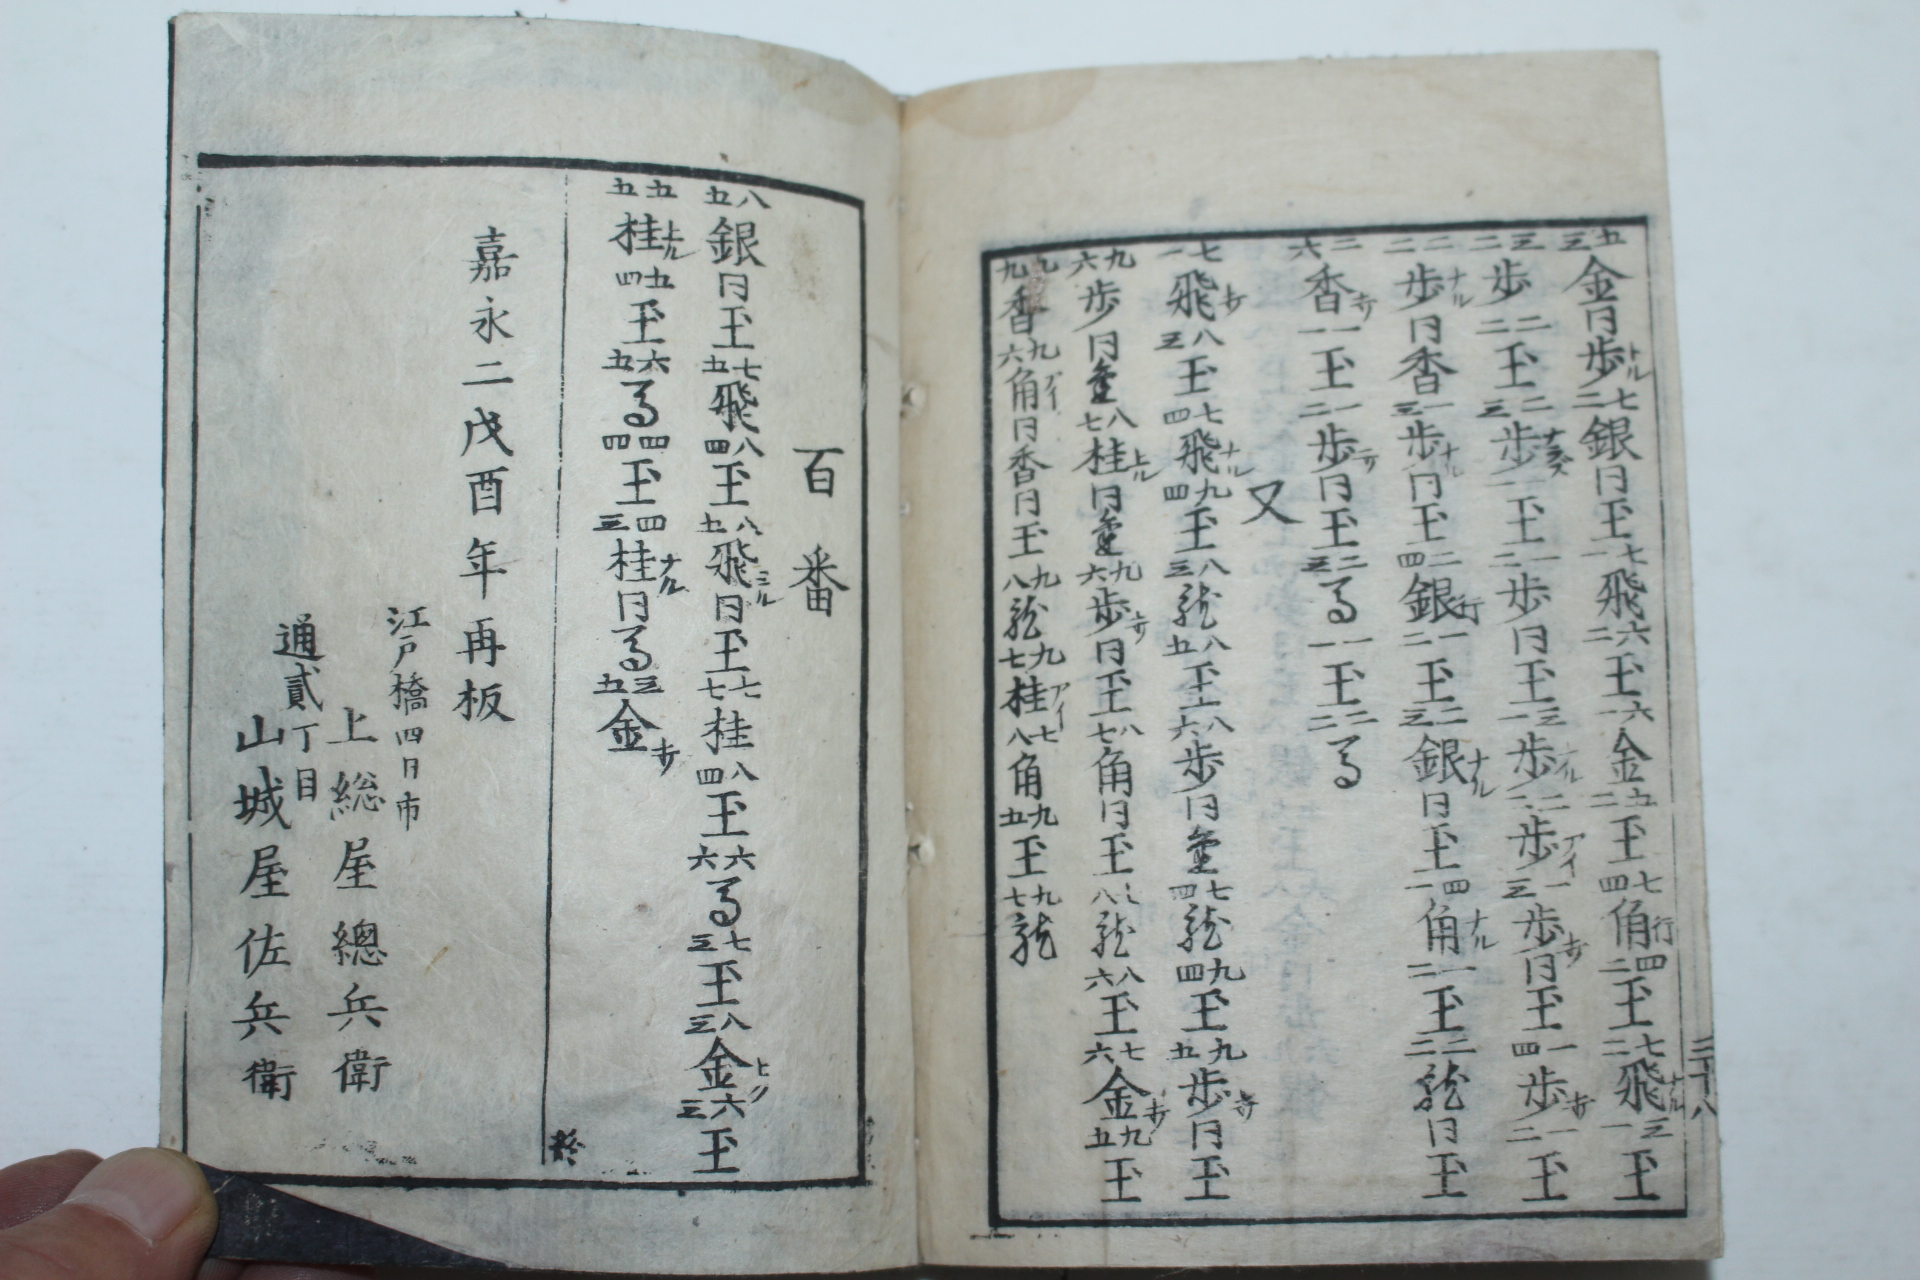 五三金同歩トル七二銀同玉七一飛六二玉六一金五二玉七四角行四二玉七二飛ナル三一玉
三二歩二二玉二三歩ナラズ一一玉一二歩同玉三一歩ナル二二歩アイ一三歩打同玉一四歩打一二玉
二二歩ナル同香一三歩ナル同玉二四銀行一二玉二三銀ナル同玉四一角ナル一二玉二二龍同玉
二六香打一一玉一二歩打同玉二三馬一一玉二二馬
又
七一飛打八三玉七四飛ナル九四玉八三龍八五玉八六歩同七四龍九四玉九五歩打同玉
九六歩同八七桂上ル同九六歩打同玉八七角同玉龍八六玉七六金打九五玉
九九香九六角アイ同香同玉九八龍九七桂アイ七八角九五玉九七龍
三十八
百番
八五銀同玉七五飛八四玉八五飛同玉七七桂八四玉六六馬七三玉八三金ヒク六三玉
五五桂上ル五四玉六五馬四四玉四三桂ナル同馬三五金打
終
嘉永二戊酉年再板
江戸橋四日市
上総屋總兵衛
通貳丁目
山城屋佐兵衛